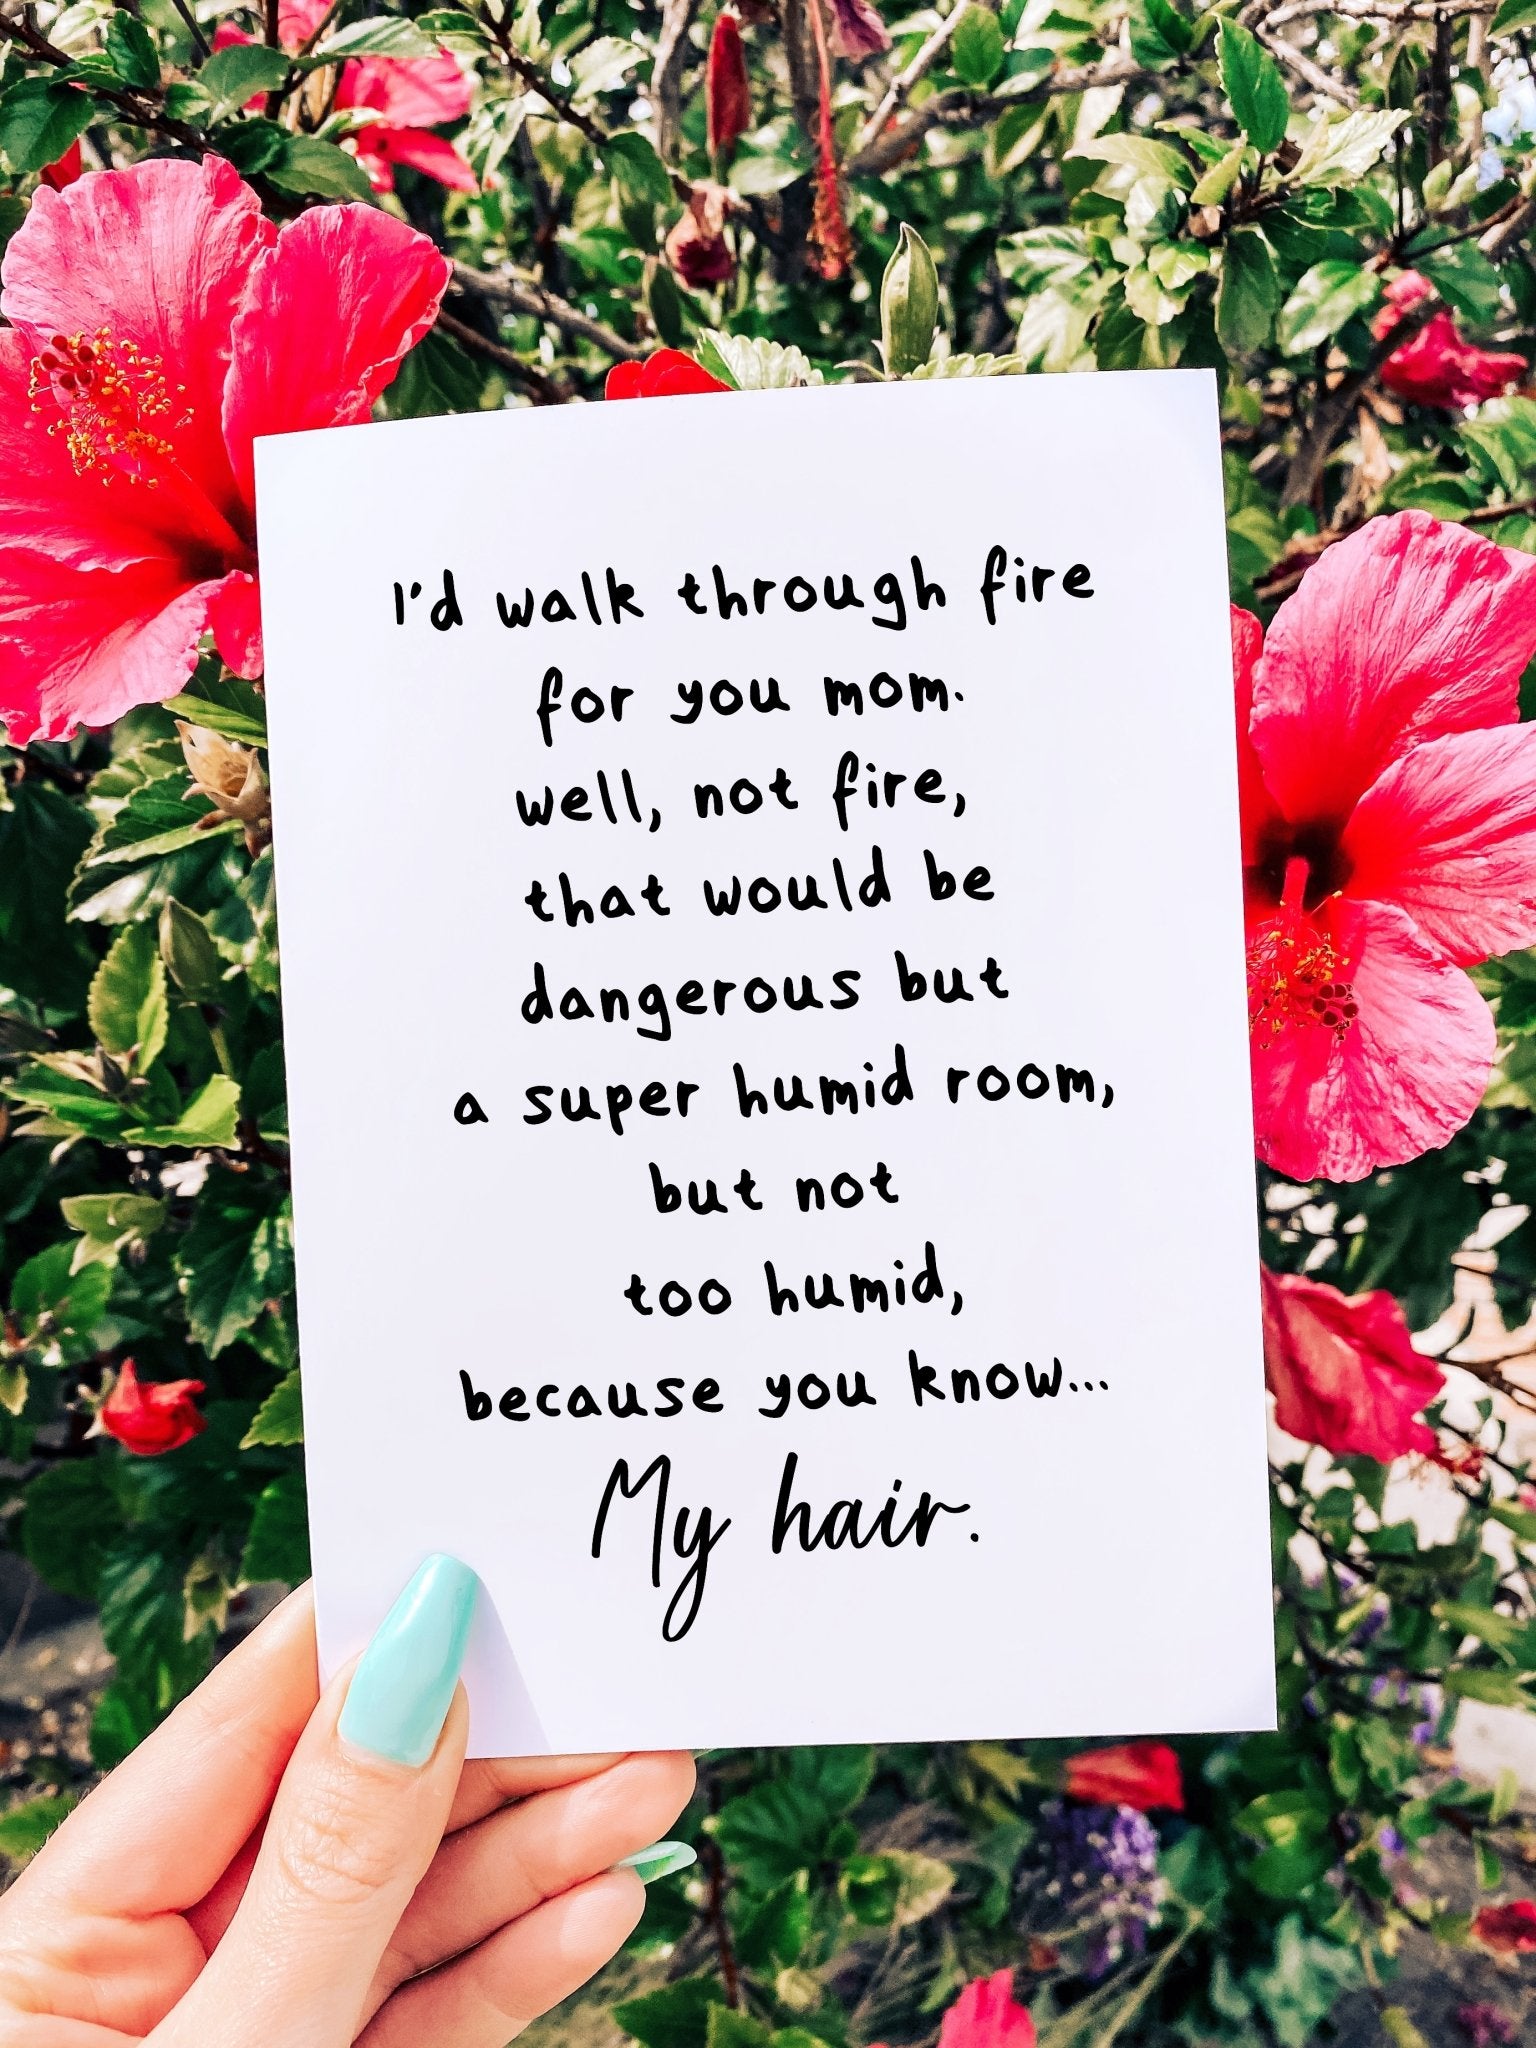 I'd walk through fire
for you mom.
well, not fire,
that would be
dangerous but
a super humid room,
but not
too humid,
because you know...
My hair.